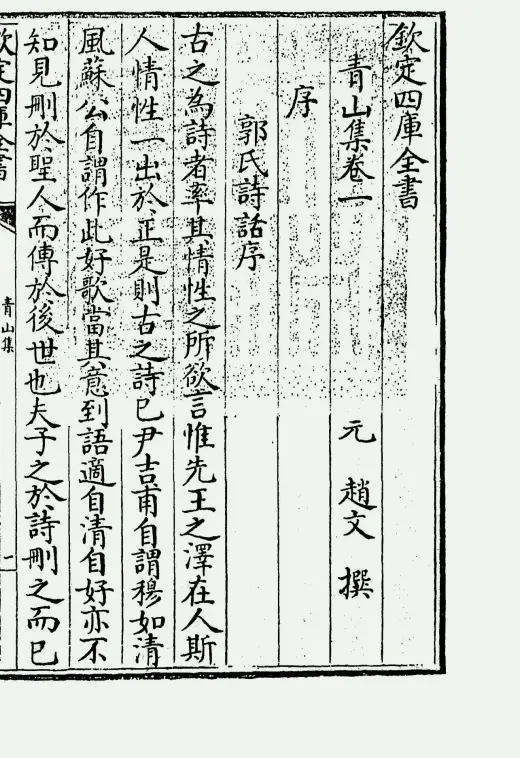 欽定四庫全書
青山集卷一
元　趙文　撰
序
郭氏詩話序
古之為詩者率其情性之所欲言惟先王之澤在人斯
人情性一出於正是則古之詩已尹吉甫自謂穆如清
風蘇公自謂作此好歌當其意到語適自清自好亦不
知見刪於聖人而傳於後世也夫子之於詩刪之而已
欽定四庫全書
青山集
一